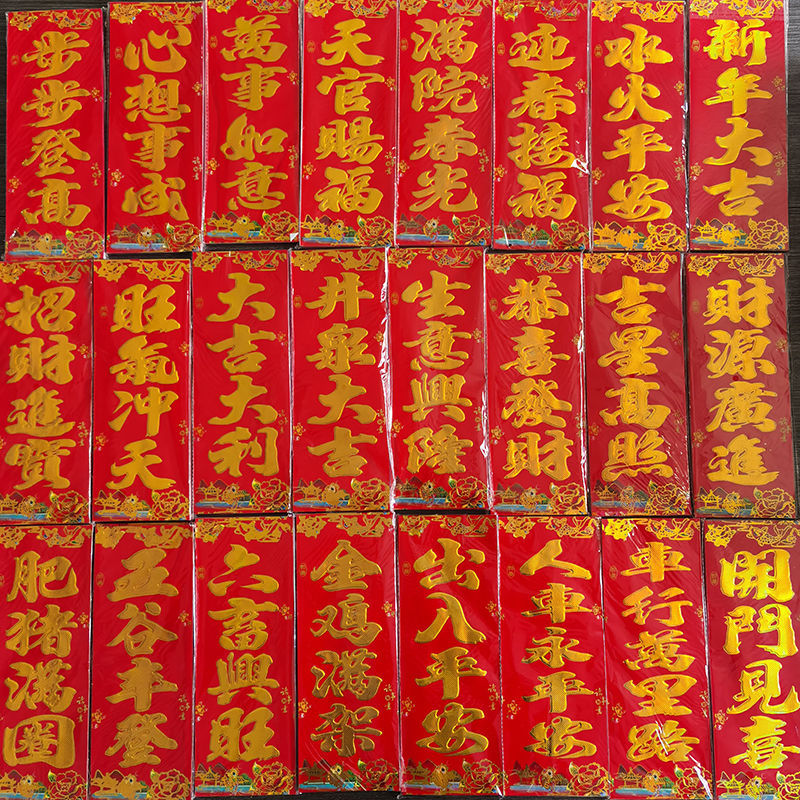 步步登高
心想事成
萬事如意
天官賜福
滿院春光
迎春接福
水火平安
新年大吉
招財進寶
旺氣冲天
大吉大利
井泉大吉
生意興隆
恭喜發財
吉星高照
財源廣進
肥猪滿圈
五谷丰登
六畜興旺
金鸡滿架
出入平安
人車永平安
車行萬里路
開門見喜